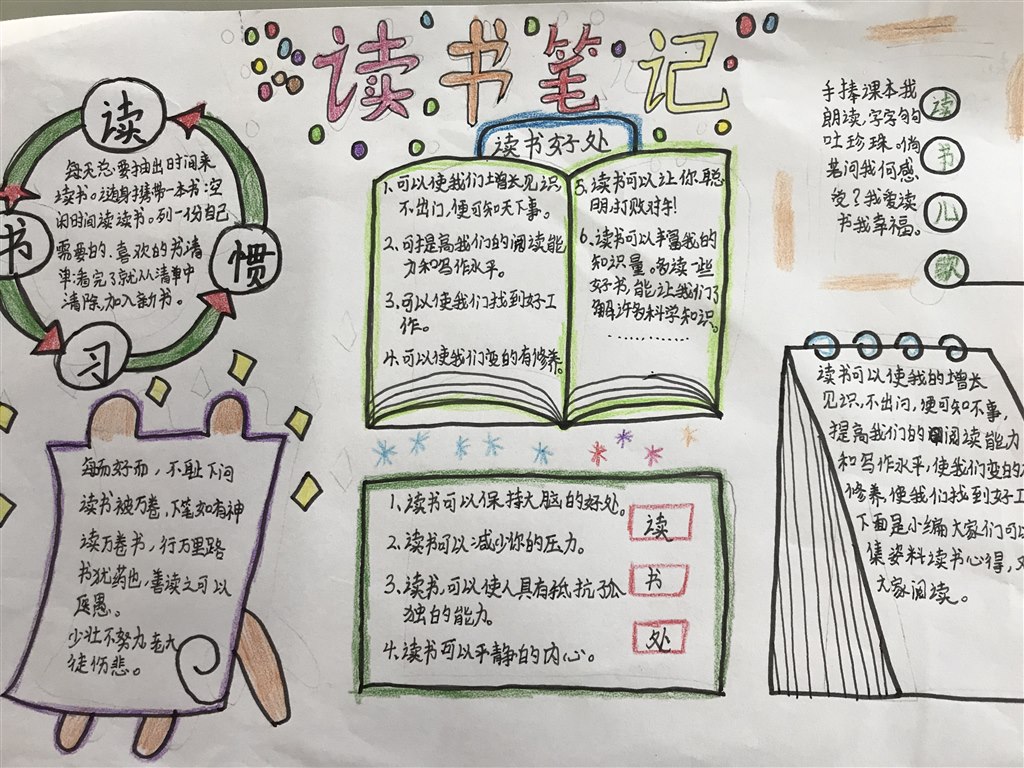 读书笔记
读
书
习
惯
每天总要抽出时间来
读书。随身携带一本书:空
闲时间读读书。列一份自己
需要的、喜欢的书清
单;看完了就从清单中
清除,加入新书。
读书好处
1、可以使我们增长见识
不出门,便可知天下事。
2、可提高我们的阅读能
力和写作水平。
3、可以使我们找到好工
作。
4、可以使我们变的有修养。
5、读书可以让你聪
明,打败对手!
6、读书可以丰富我的
知识量。多读一些
好书,能让我们了
解许多科学知识。
…………
手捧课本我
朗读,字字句句
吐珍珠。倘
若问我何感
受?我爱读
书我幸福。
读
书
儿
歌
每而好而,不耻下问
读书被万卷,下笔如有神
读万卷书,行万里路
书犹药也,善读之可以
医愚。
少壮不努力 老大
徒伤悲。
1、读书可以保持大脑的好处。
2、读书可以减少你的压力。
3、读书,可以使人具有抵抗孤
独的能力。
4、读书可以平静的内心。
读
书
处
读书可以使我的增长
见识,不出门,便可知不事,
提高我们的阅读能力
和写作水平,使我们变的的
修养,使我们找到好工
下面是小编大家们可以
集资料读书心得,
大家阅读。